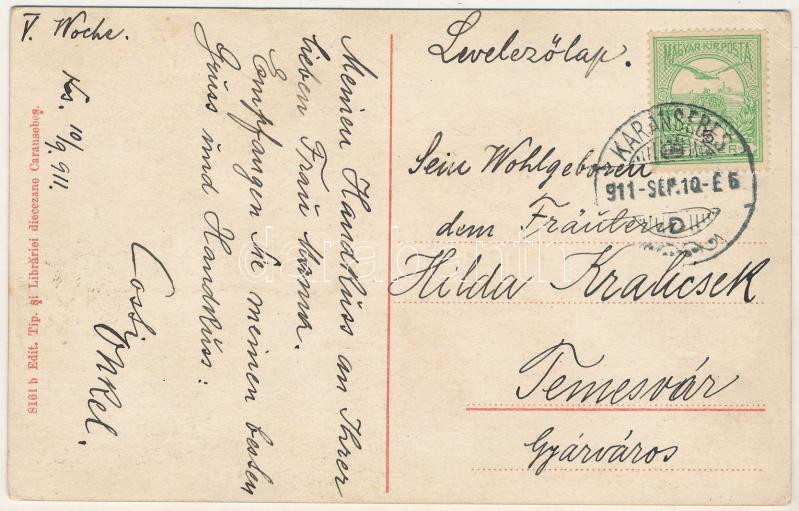 V. Woche.
Ks. 10/9. 911.
Meinen Handkuss an Ihrer
lieben Frau Mama.
Empfangen Sie meinen besten
Gruss und Handkuss:
Onkel.
8161 b Edit. Tip. și Librăriei diecezane Caransebeș.
Levelezőlap.
MAGYAR KIR. POSTA
KARÁNSEBES
911-SEP.10-E 6
D
Sein Wohlgeboren
dem Fräulein
Hilda Kralicsek
Temesvár
Gyárváros
darabanth